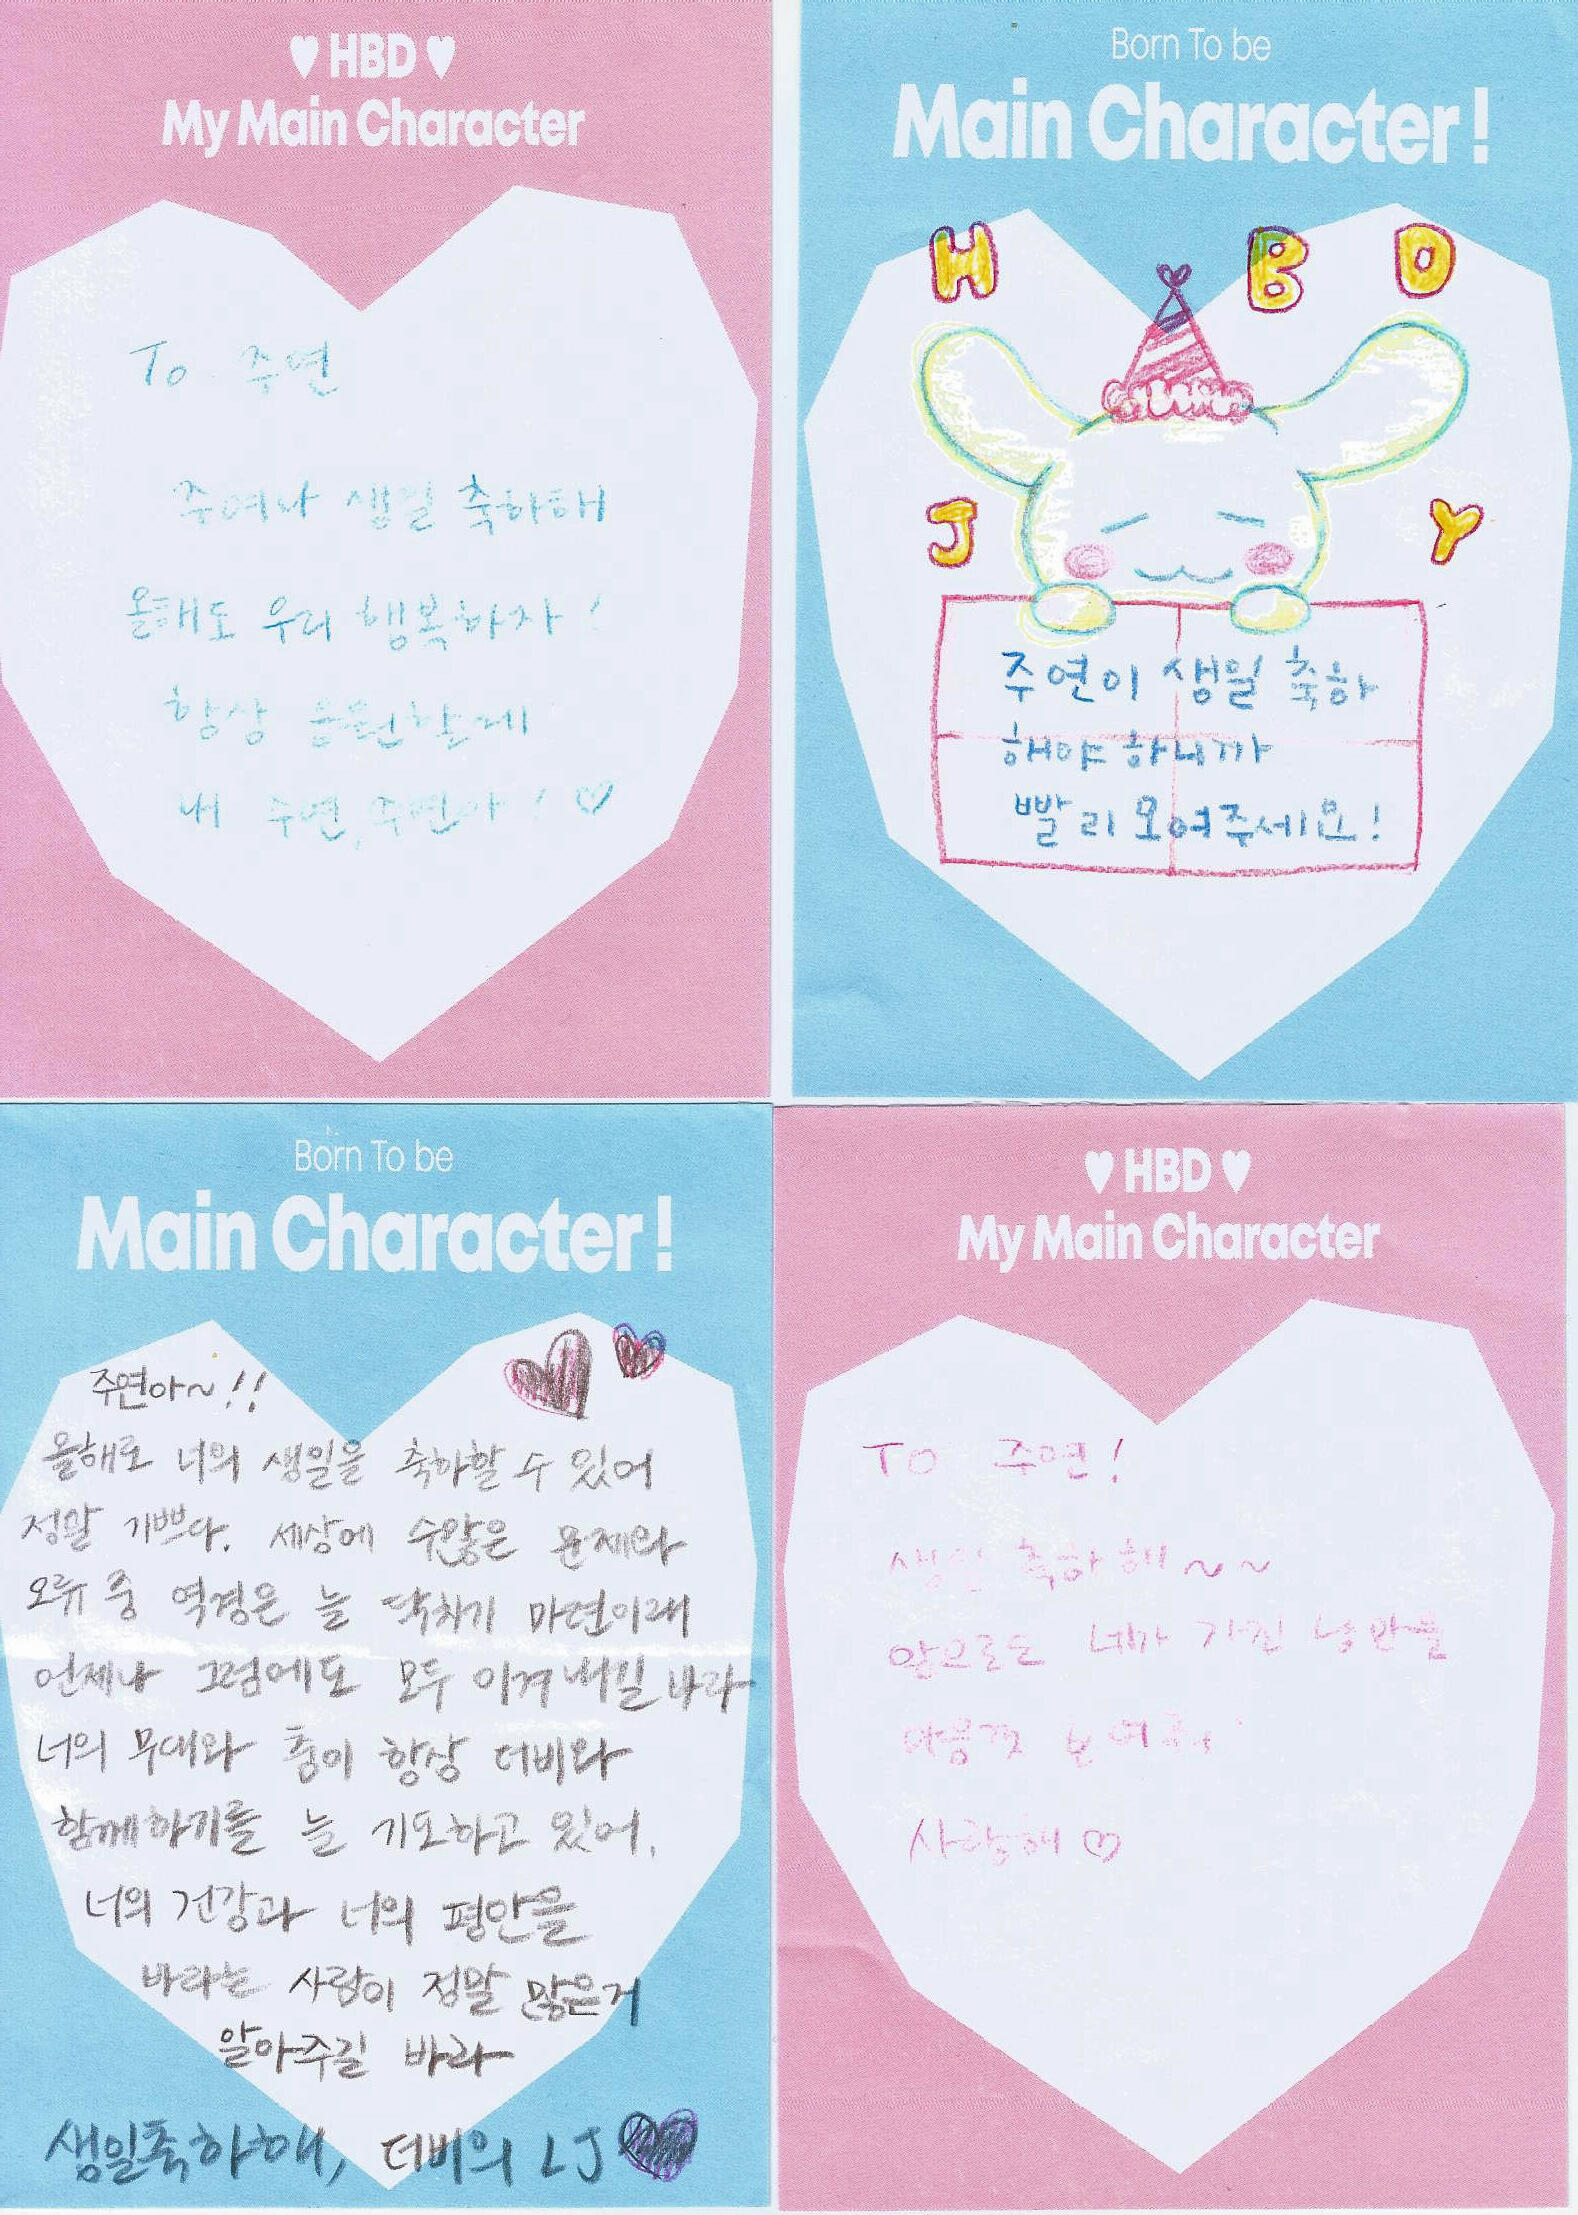 ♥ HBD ♥
My Main Character
To 주연
주여나 생일 축하해
올해도 우리 행복하자!
항상 응원할게
내 주연, 주연아! ♡
Born To be
Main Character!
H B D
J Y
주연이 생일 축하
해야 하니까
빨리 모여주세요!
Born To be
Main Character!
주연아~!!
올해로 너의 생일을 축하할 수 있어
정말 기쁘다. 세상에 수많은 문제와
오류 중 역경은 늘 닥치기 마련이래
언제나 그럼에도 모두 이겨내길 바라
너의 무대와 춤이 항상 더비와
함께하기를 늘 기도하고 있어.
너의 건강과 너의 평안을
바라는 사람이 정말 많은거
알아주길 바라
생일축하해, 더비의 LJ
♥ HBD ♥
My Main Character
TO 주연!
생일 축하해~~
앞으로도 네가 가진 낭만을
마음껏 보여줘!
사랑해♡